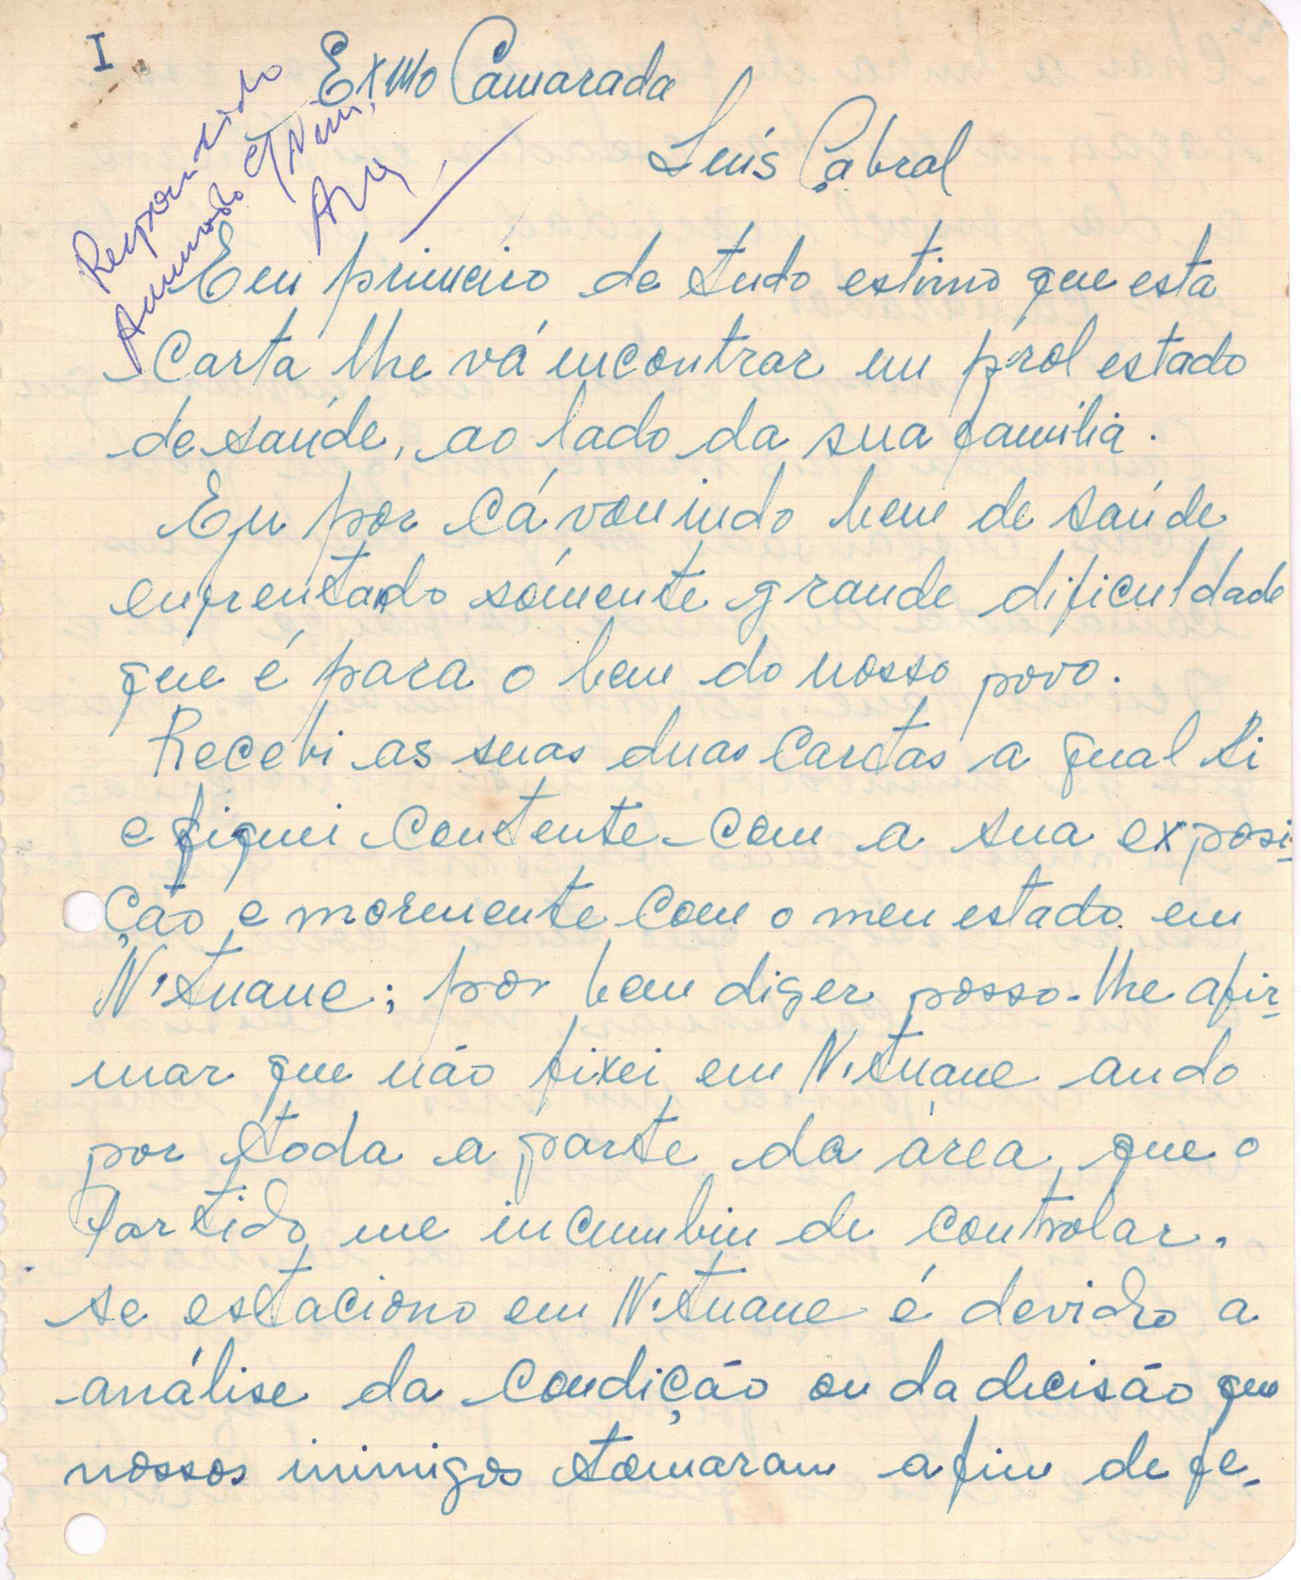 I
Exmo Camarada
Luís Cabral
Respondido
Em primeiro de tudo estimo que esta
Carta lhe vá encontrar em prol estado
de saúde, ao lado da sua família.
Eu por cá vou indo bem de saúde
enfrentado sómente grande dificuldade
que é para o bem do nosso povo.
Recebi as suas duas Cartas a qual li
e fiquei contente com a sua exposi-
ção e mormente com o meu estado em
N'Tuane; por bem diger posso-lhe afir-
mar que não fixei em N'Tuane ando
por toda a parte da área que o
Partido me incumbiu de controlar.
se estaciono em N'Tuane é devido a
análise da condição ou da decisão que
nossos inimigos tomaram afim de fe-